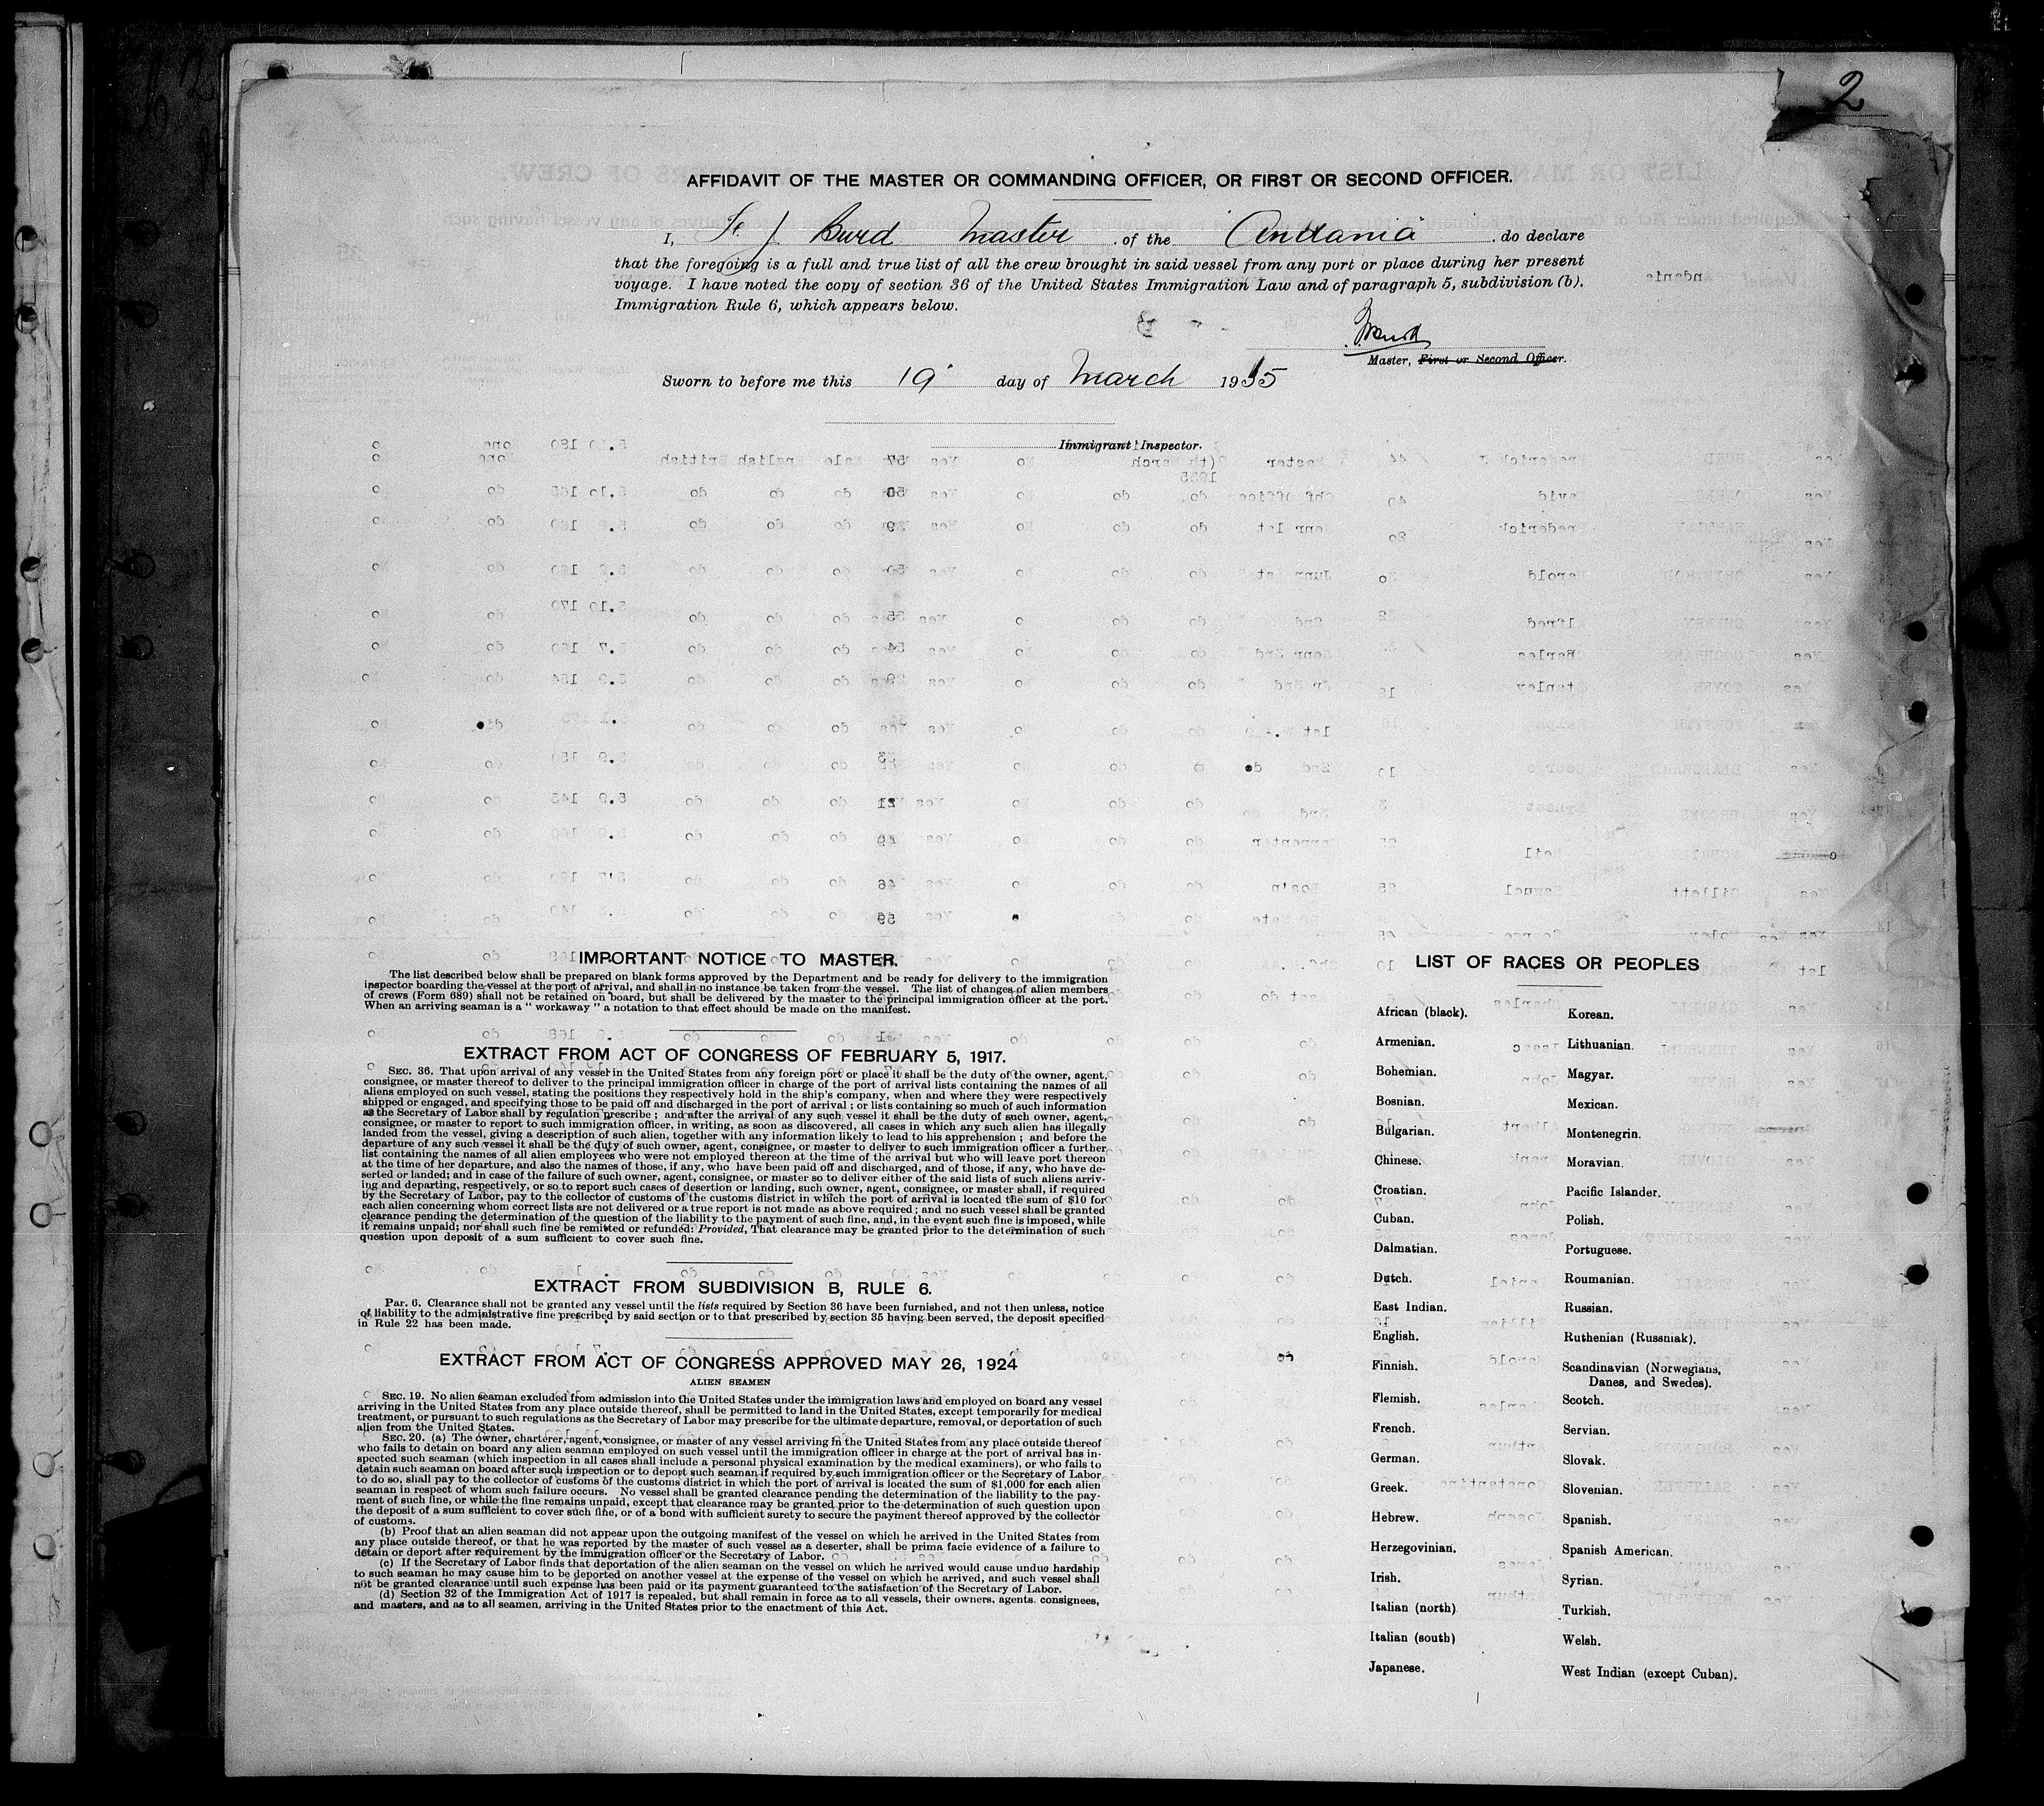 2
AFFIDAVIT OF THE MASTER OR COMMANDING OFFICER, OR FIRST OR SECOND OFFICER.
I, F. J. Burd Master of the Andania do declare
that the foregoing is a full and true list of all the crew brought in said vessel from any port or place during her present
voyage. I have noted the copy of section 36 of the United States Immigration Law and of paragraph 5, subdivision (b).
Immigration Rule 6, which appears below.
Master, First or Second Officer.
Sworn to before me this 19 day of March 1935
Immigrant Inspector.
IMPORTANT NOTICE TO MASTER.
The list described below shall be prepared on blank forms approved by the Department and be ready for delivery to the immigration
inspector boarding the vessel at the port of arrival, and shall in no instance be taken from the vessel. The list of changes of alien members
of crews (Form 689) shall not be retained on board, but shall be delivered by the master to the principal immigration officer at the port.
When an arriving seaman is a " workaway " a notation to that effect should be made on the manifest.
EXTRACT FROM ACT OF CONGRESS OF FEBRUARY 5, 1917.
SEC. 36. That upon arrival of any vessel in the United States from any foreign port or place it shall be the duty of the owner, agent,
consignee, or master thereof to deliver to the principal immigration officer in charge of the port of arrival lists containing the names of all
aliens employed on such vessel, stating the positions they respectively hold in the ship's company, when and where they were respectively
shipped or engaged, and specifying those to be paid off and discharged in the port of arrival ; or lists containing so much of such information
as the Secretary of Labor shall by regulation prescribe ; and after the arrival of any such vessel it shall be the duty of such owner, agent,
consignee, or master to report to such immigration officer, in writing, as soon as discovered, all cases in which any such alien has illegally
landed from the vessel, giving a description of such alien, together with any information likely to lead to his apprehension ; and before the
departure of any such vessel it shall be the duty of such owner, agent, consignee, or master to deliver to such immigration officer a further
list containing the names of all alien employees who were not employed thereon at the time of the arrival but who will leave port thereon
at the time of her departure, and also the names of those, if any, who have been paid off and discharged, and of those, if any, who have de-
serted or landed; and in case of the failure of such owner, agent, consignee, or master so to deliver either of the said lists of such aliens arriv-
ing and departing, respectively, or so to report such cases of desertion or landing, such owner, agent, consignee, or master shall, if required
by the Secretary of Labor, pay to the collector of customs of the customs district in which the port of arrival is located the sum of $10 for
each alien concerning whom correct lists are not delivered or a true report is not made as above required ; and no such vessel shall be granted
clearance pending the determination of the question of the liability to the payment of such fine, and, in the event such fine is imposed, while
it remains unpaid; nor shall such fine be remitted or refunded: Provided, That clearance may be granted prior to the determination of such
question upon deposit of a sum sufficient to cover such fine.
EXTRACT FROM SUBDIVISION B, RULE 6.
Par. 6. Clearance shall not be granted any vessel until the lists required by Section 36 have been furnished, and not then unless, notice
of liability to the administrative fine prescribed by said section or to that prescribed by section 35 having been served, the deposit specified
in Rule 22 has been made.
EXTRACT FROM ACT OF CONGRESS APPROVED MAY 26, 1924
ALIEN SEAMEN
SEC. 19. No alien seaman excluded from admission into the United States under the immigration laws and employed on board any vessel
arriving in the United States from any place outside thereof, shall be permitted to land in the United States, except temporarily for medical
treatment, or pursuant to such regulations as the Secretary of Labor may prescribe for the ultimate departure, removal, or deportation of such
alien from the United States.
SEC. 20. (a) The owner, charterer, agent, consignee, or master of any vessel arriving in the United States from any place outside thereof
who fails to detain on board any alien seaman employed on such vessel until the immigration officer in charge at the port of arrival has in-
spected such seaman (which inspection in all cases shall include a personal physical examination by the medical examiners), or who fails to
detain such seaman on board after such inspection or to deport such seaman if required by such immigration officer or the Secretary of Labor
to do so, shall pay to the collector of customs of the customs district in which the port of arrival is located the sum of $1,000 for each alien
seaman in respect of whom such failure occurs. No vessel shall be granted clearance pending the determination of the liability to the pay-
ment of such fine, or while the fine remains unpaid, except that clearance may be granted prior to the determination of such question upon
the deposit of a sum sufficient to cover such fine, or of a bond with sufficient surety to secure the payment thereof approved by the collector
of customs.
(b) Proof that an alien seaman did not appear upon the outgoing manifest of the vessel on which he arrived in the United States from
any place outside thereof, or that he was reported by the master of such vessel as a deserter, shall be prima facie evidence of a failure to
detain or deport after requirement by the immigration officer or the Secretary of Labor.
(c) If the Secretary of Labor finds that deportation of the alien seaman on the vessel on which he arrived would cause undue hardship
to such seaman he may cause him to be deported on another vessel at the expense of the vessel on which he arrived, and such vessel shall
not be granted clearance until such expense has been paid or its payment guaranteed to the satisfaction of the Secretary of Labor.
(d) Section 32 of the Immigration Act of 1917 is repealed, but shall remain in force as to all vessels, their owners, agents, consignees,
and masters, and as to all seamen, arriving in the United States prior to the enactment of this Act.
LIST OF RACES OR PEOPLES
African (black).
Armenian.
Bohemian.
Bosnian.
Bulgarian.
Chinese.
Croatian.
Cuban.
Dalmatian.
Dutch.
East Indian.
English.
Finnish.
Flemish.
French.
German.
Greek.
Hebrew.
Herzegovinian.
Irish.
Italian (north)
Italian (south)
Japanese.
Korean.
Lithuanian.
Magyar.
Mexican.
Montenegrin.
Moravian.
Pacific Islander.
Polish.
Portuguese.
Roumanian.
Russian.
Ruthenian (Russniak).
Scandinavian (Norwegians,
Danes, and Swedes).
Scotch.
Servian.
Slovak.
Slovenian.
Spanish.
Spanish American.
Syrian.
Turkish.
Welsh.
West Indian (except Cuban).